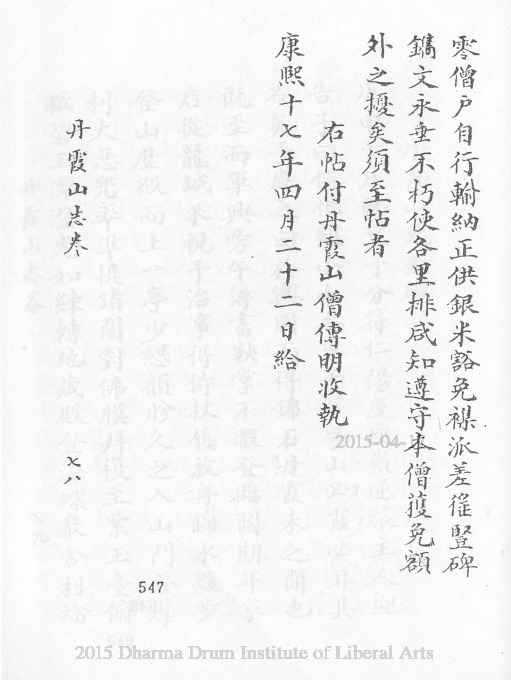 零僧户自行輸納正供銀米豁免襍派差徭豎碑
鐫文永垂不朽使各里排咸知遵守本僧獲免額
外之擾矣須至帖者
右帖付丹霞山僧傳明收執
康熙十七年四月二十二日給
丹霞山志卷
七八
547
2015-04-1
2015 Dharma Drum Institute of Liberal Arts